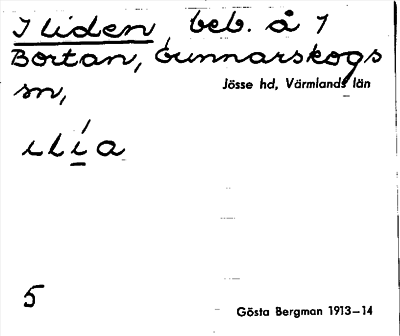 I liden, beb. å 1
Bortan, Gunnarskogs
sn,
Jösse hd, Värmlands län
ilí̱a
5
Gösta Bergman 1913–14